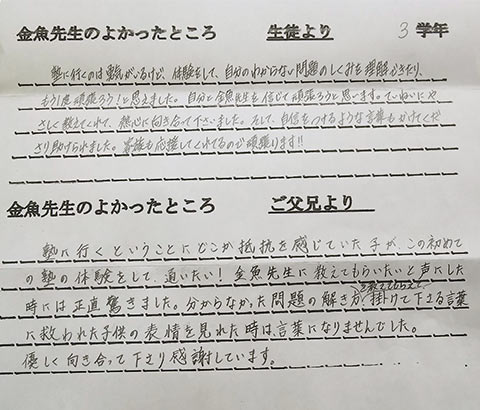 金魚先生のよかったところ 生徒より 3 学年
塾に行くのは勇気がいるけど、体験をして、自分のわからない問題のしくみを理解できたり、
もう1度頑張ろう!と思えました。自分と金魚先生を信じて頑張ろうと思います。ていねいにや
さしく教えてくれて、熱心に向き合って下さいました。そして、自信をつけるような言葉もかけてくだ
さり助けられました。家族も応援してくれてるので頑張ります!!
金魚先生のよかったところ ご父兄より
塾に行くということにどこか抵抗を感じていた子が、この初めて
の塾の体験をして、通いたい!金魚先生に教えてもらいたいと声にした
時には正直驚きました。分からなかった問題の解き方を教えてもらえて、掛けて下さる言葉
に救われた子供の表情を見れた時は、言葉になりませんでした。
優しく向き合って下さり感謝しています。